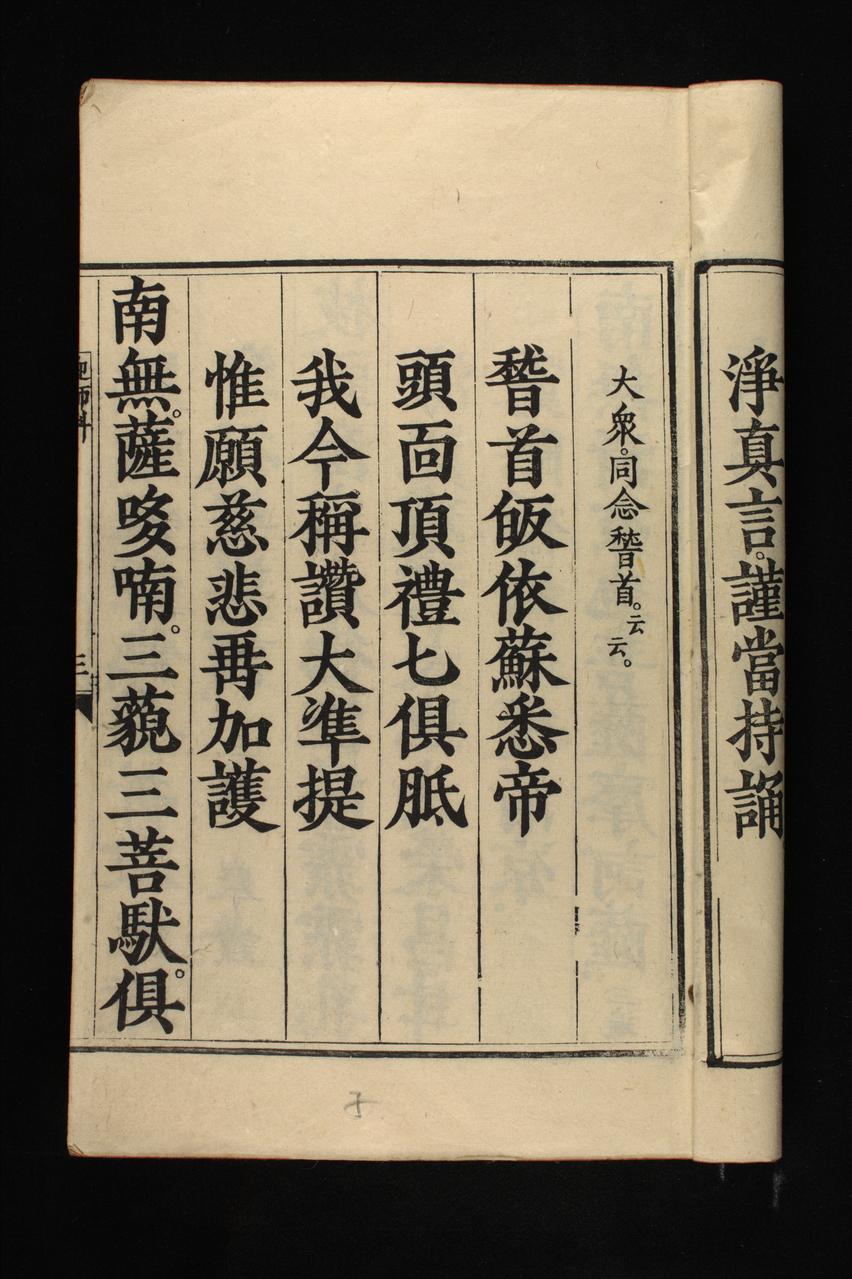 淨真言。謹當持誦
大衆。同念嵆首。云云。
嵆首皈依蘇悉帝
頭靣頂禮七俱胝
我今稱讚大準提
惟願慈悲再加護
南無。薩哆喃。三藐三菩馱。俱
三